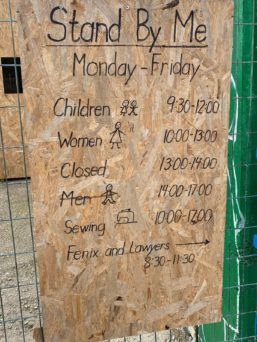 Stand By Me
Monday - Friday
Children 9:30-12:00
Women 10:00-13:00
Closed 13:00-14:00
Men 14:00-17:00
Sewing 10:00-17:00
Fenix and Lawyers
8:30-11:30